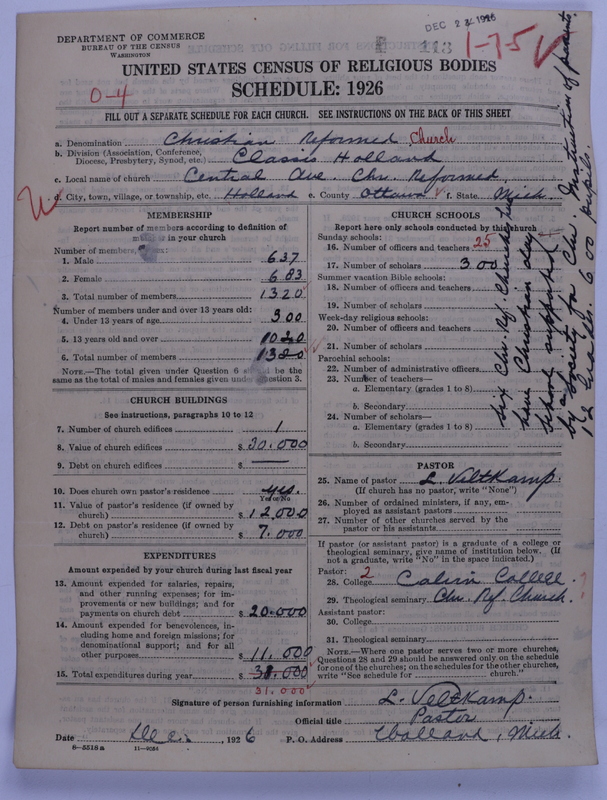 DEC 2 1926
DEPARTMENT OF COMMERCE
BUREAU OF THE CENSUS
WASHINGTON
113
1-75 ✓
UNITED STATES CENSUS OF RELIGIOUS BODIES
0-4
SCHEDULE: 1926
FILL OUT A SEPARATE SCHEDULE FOR EACH CHURCH. SEE INSTRUCTIONS ON THE BACK OF THIS SHEET
a. Denomination Christian Reformed Church
b. Division (Association, Conference, Diocese, Presbytery, Synod, etc.) Classis Holland
c. Local name of church Central Ave. Chr. Reformed
d. City, town, village, or township, etc. Holland e. County Ottawa ✓ f. State Mich.
MEMBERSHIP
Report number of members according to definition of
members in your church
Number of members by sex:
1. Male 637
2. Female 683
3. Total number of members 1320
Number of members under and over 13 years old:
4. Under 13 years of age 300
5. 13 years old and over 1020
6. Total number of members 1320
NOTE.—The total given under Question 6 should be the
same as the total of males and females given under Question 3.
CHURCH BUILDINGS
See instructions, paragraphs 10 to 12
7. Number of church edifices 1
8. Value of church edifices $ 30.000
9. Debt on church edifices $ —
10. Does church own pastor's residence yes.
Yes or No
11. Value of pastor's residence (if owned by
church) $ 12.000
12. Debt on pastor's residence (if owned by
church) $ 7.000
EXPENDITURES
Amount expended by your church during last fiscal year
13. Amount expended for salaries, repairs,
and other running expenses; for im-
provements or new buildings; and for
payments on church debt $ 20.000
14. Amount expended for benevolences, in-
cluding home and foreign missions; for
denominational support; and for all
other purposes $ 11.000
15. Total expenditures during year $ 38.000
31.000 ✓
CHURCH SCHOOLS
Report here only schools conducted by this church
Sunday schools:
16. Number of officers and teachers 25
17. Number of scholars 300
Summer vacation Bible schools:
18. Number of officers and teachers
19. Number of scholars
Week-day religious schools:
20. Number of officers and teachers
21. Number of scholars
Parochial schools:
22. Number of administrative officers
23. Number of teachers—
a. Elementary (grades 1 to 8)
b. Secondary
24. Number of scholars—
a. Elementary (grades 1 to 8)
b. Secondary
Six Chr. Ref. Churches here
have Christian day
school supported
by a Society for Chr. Instruction of parents.
12 Grades. 600 pupils
PASTOR
25. Name of pastor L. Veltkamp
(If church has no pastor, write "None")
26. Number of ordained ministers, if any, em-
ployed as assistant pastors
27. Number of other churches served by the
pastor or his assistants
If pastor (or assistant pastor) is a graduate of a college or
theological seminary, give name of institution below. (If
not a graduate, write "No" in the space indicated.)
Pastor: 2
28. College Calvin College
29. Theological seminary Chr. Ref. Church
Assistant pastor:
30. College
31. Theological seminary
NOTE.—Where one pastor serves two or more churches,
Questions 28 and 29 should be answered only on the schedule
for one of the churches; on the schedules for the other churches,
write "See schedule for church."
Signature of person furnishing information L. Veltkamp
Official title Pastor
Date Dec. , 1926 P. O. Address Holland, Mich.
8—5518a 11—9034